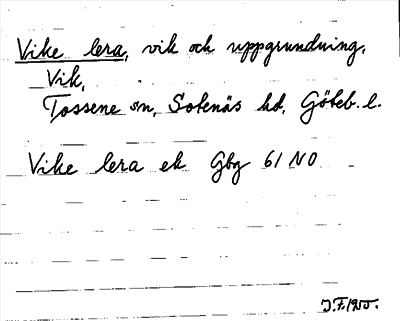 Vike lera, vik och uppgrundning,
Vik,
Tossene sn, Sotenäs hd, Göteb. l.
Vike lera ek Gbg 61 NO